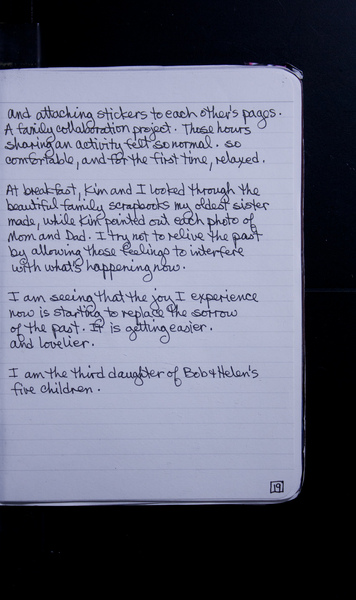 and attaching stickers to each other's pages.
A family collaboration project. Those hours
sharing an activity felt so normal. so
comfortable, and for the first time, relaxed.
At breakfast, Kim and I looked through the
beautiful family scrapbooks my oldest sister
made, while Kim pointed out each photo of
Mom and Dad. I try not to relive the past
by allowing those feelings to interfere
with what's happening now.
I am seeing that the joy I experience
now is starting to replace the sorrow
of the past. It is getting easier.
and lovelier.
I am the third daughter of Bob & Helen's
five children.
19